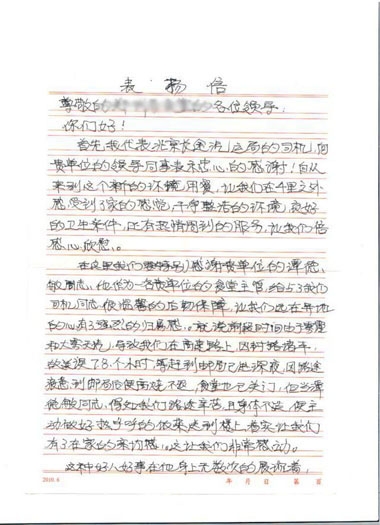 表扬信
尊敬的 各位领导:
你们好!
首先我代表北京 运局的司机,向
贵单位的领导同事表示忠心的感谢!自从
来到这个新的环境用餐,让我们在千里之外
感受到了家的感觉,干净整洁的环境,良好
的卫生条件,还有热情周到的服务,让我们倍
感心欣慰。
在这里我们要特别感谢贵单位的谭德
敏同志,他作为贵单位的食堂主管,给予了我们
司机同志很温馨的后勤保障,让我们远在异地
的心有了强烈的归属感。就说前段时间由于雾霾
和大雾天气,导致我们在高速路上,因封路堵车,
故延误7.8个小时,等赶到邮局已进深夜,因路途
疲惫,到邮局后便 不适,食堂也已关门,但当谭
德敏同志,得知我们路途辛苦,且身体不适,便主
动做好 的饭菜送到楼上,着实让我们
有了在家的亲切感。这让我们非常感动。
这种好人好事在他身上无数次的展示着,
2010.6
年 月 日 第 页